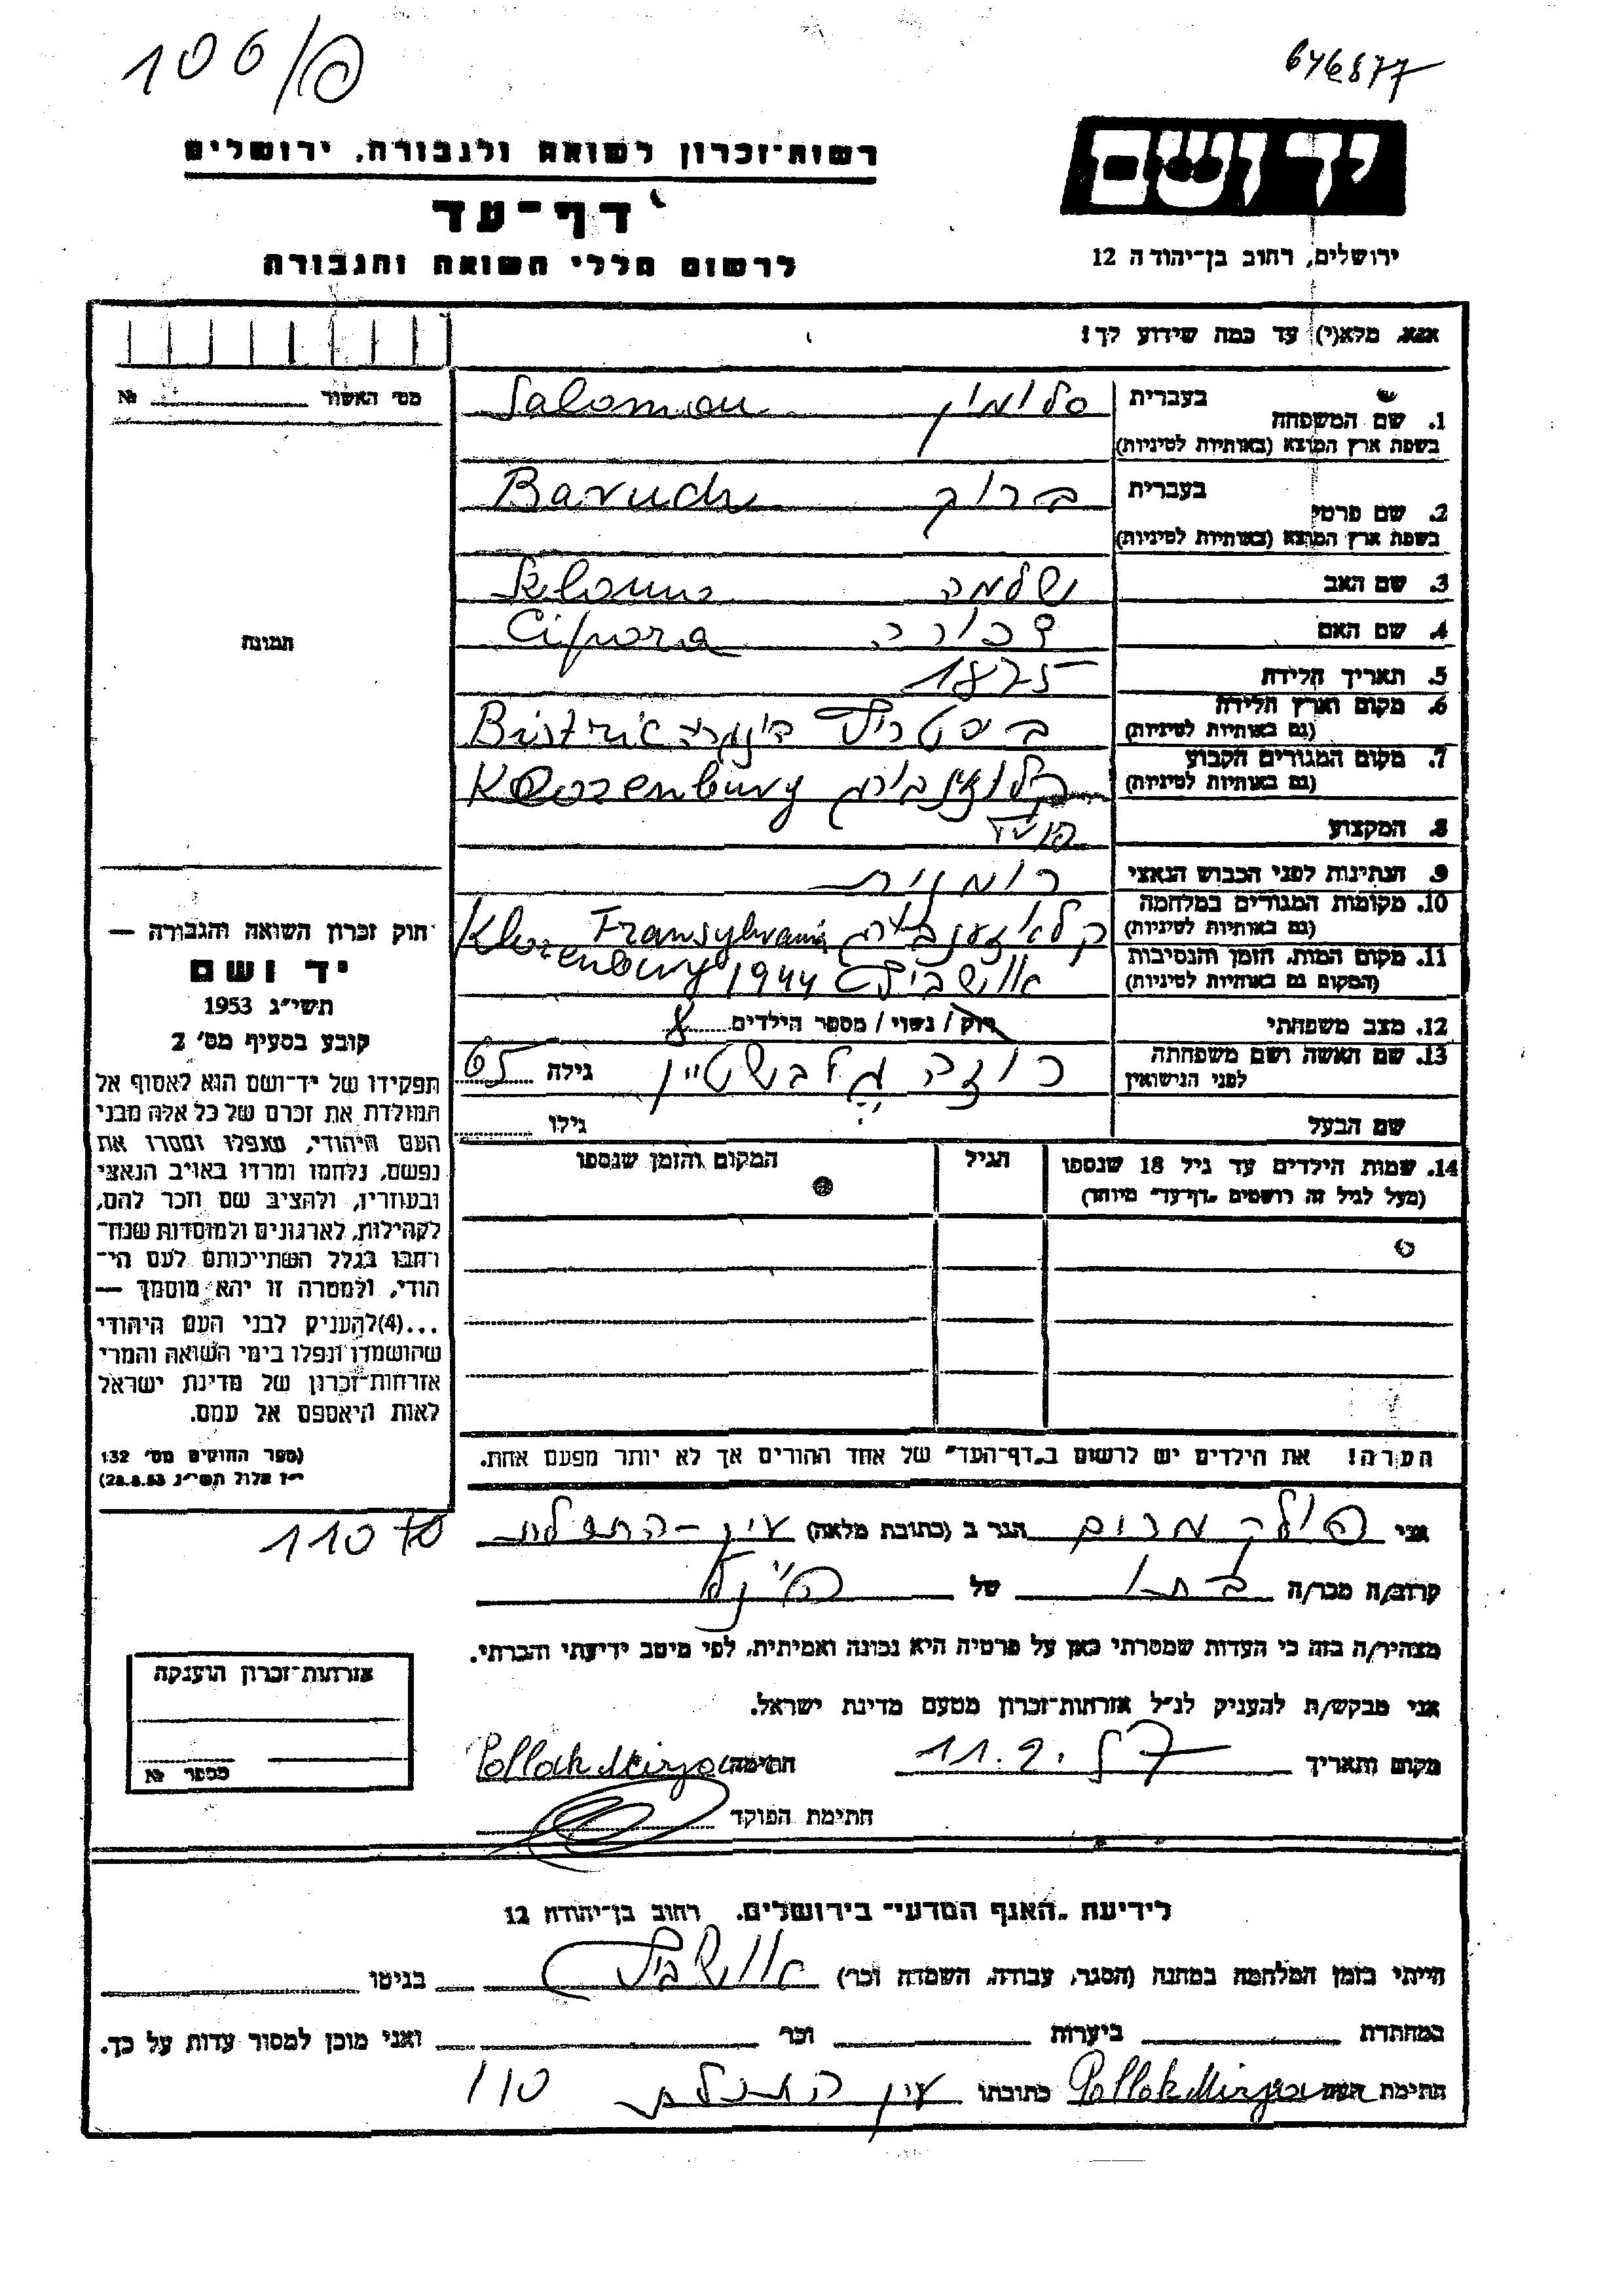 106/פ
646877
יד ושם
ירושלים, רחוב בן־יהודה 12
רשות־זכרון לשואה ולגבורה, ירושלים
דף־עד
לרשום חללי השואה והגבורה
אנא, מלא(י) עד כמה שידוע לך!
מס׳ האשור № 
1. שם המשפחה
בעברית סלומון Salomon
בשפת ארץ המוצא (באותיות לטיניות)
2. שם פרטי
בעברית ברוך Baruch
בשפת ארץ המוצא (באותיות לטיניות)
3. שם האב שלמה
4. שם האם צפורה Cipora
5. תאריך הלידה 1875
6. מקום וארץ הלידה
(גם באותיות לטיניות)
7. מקום המגורים הקבוע
(גם באותיות לטיניות)
8. המקצוע
9. הנתינות לפני הכבוש הנאצי רומנית
10. מקומות המגורים במלחמה
(גם באותיות לטיניות) Transylvania
11. מקום המות, הזמן והנסיבות
(המקום גם באותיות לטיניות) אושביץ 1944
12. מצב משפחתי רוק/ נשוי / מספר הילדים 8
13. שם האשה ושם משפחתה
לפני הנישואין
רוזה גולבשטיין גילה 65
שם הבעל גילו
14. שמות הילדים עד גיל 18 שנספו
(מעל לגיל זה רושמים „דף־עד” מיוחד)
הגיל
המקום והזמן שנספו
הערה! את הילדים יש לרשום ב„דף־העד” של אחד ההורים אך לא יותר מפעם אחת.
תמונה
חוק זכרון השואה והגבורה —
יד ושם
תשי״ג 1953
קובע בסעיף מס׳ 2
תפקידו של יד־ושם הוא לאסוף אל
המולדת את זכרם של כל אלה מבני
העם היהודי, שנפלו ומסרו את
נפשם, נלחמו ומרדו באויב הנאצי
ובעוזריו, ולהציב שם וזכר להם,
לקהילות, לארגונים ולמוסדות שנח־
רבו בגלל השתייכותם לעם הי־
הודי, ולמטרה זו יהא מוסמך —
...(4)להעניק לבני העם היהודי
שהושמדו ונפלו בימי השואה והמרי
אזרחות־זכרון של מדינת ישראל
לאות היאספם אל עמם.
(ספר החוקים מס׳ 132
י״ז אלול תשי״ג 28.8.53)
אני פולק מרים הגר ב (כתובת מלאה) עין-התכלת
110
קרוב/ה מכר/ה בתו של הנ״ל
מצהיר/ה בזה כי העדות שמסרתי כאן על פרטיה היא נכונה ואמיתית, לפי מיטב ידיעתי והכרתי.
אני מבקש/ת להעניק לנ״ל אזרחות־זכרון מטעם מדינת ישראל.
מקום ותאריך 11.9. חתימה Pollak Mirjam
חתימת הפוקד
אזרחות־זכרון הוענקה
מספר №
לידיעת „האגף המדעי” בירושלים. רחוב בן־יהודה 12
הייתי בזמן המלחמה במחנה (הסגר, עבודה, השמדה וכו׳) אושביץ בגיטו
במחתרת ביערות וכו׳ ואני מוכן למסור עדות על כך.
חתימת העד Pollak Mirjam כתובתו עין התכלת 110